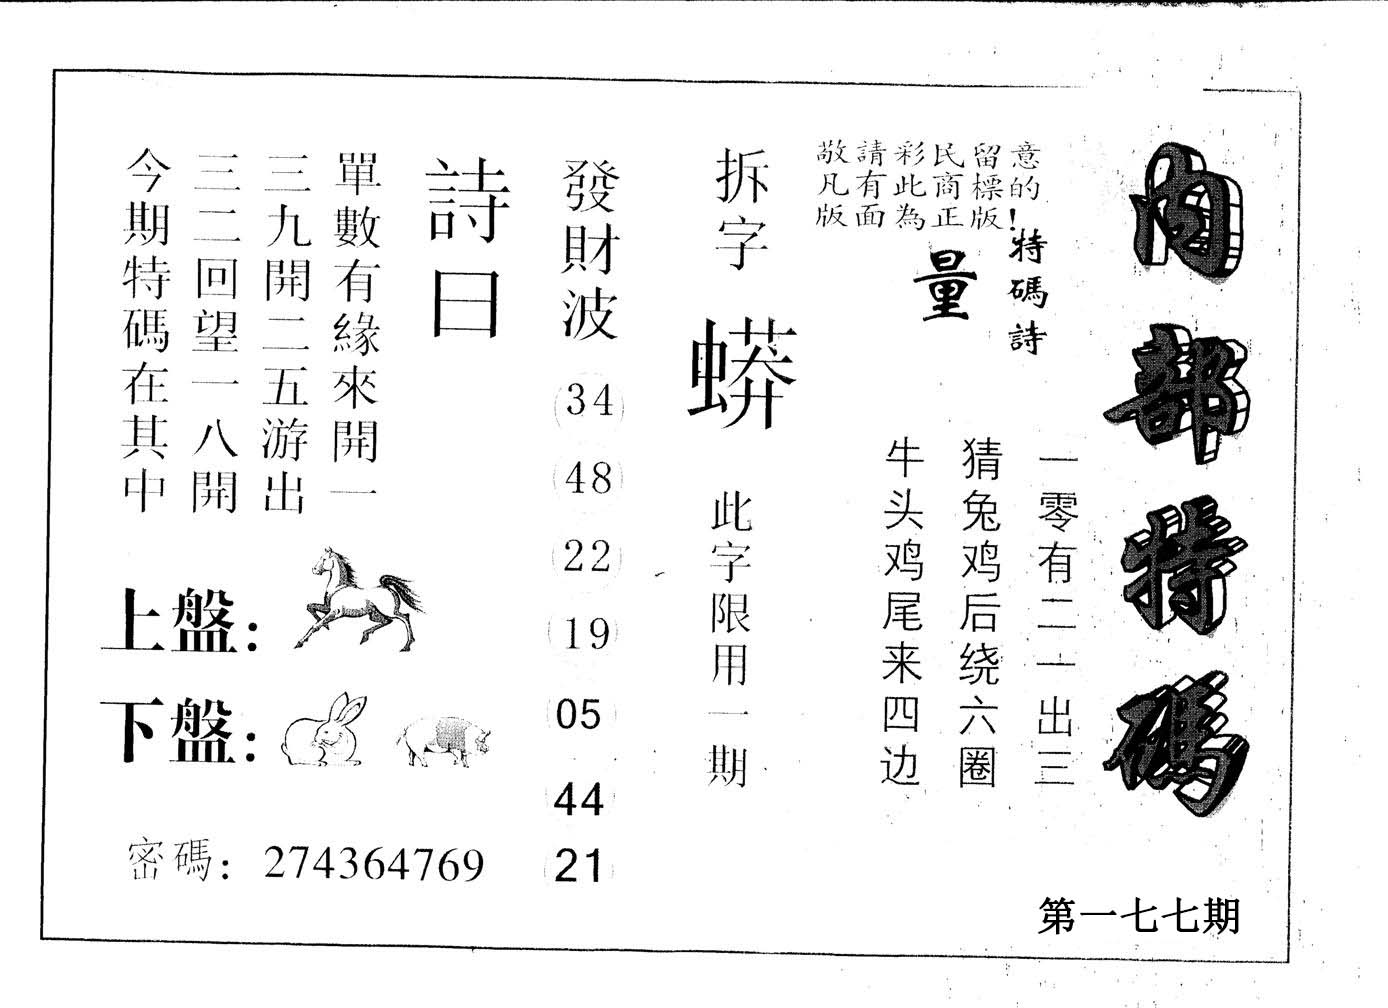 內部特碼
第一七七期
敬請彩民留意
凡有此商標的
版面為正版!
量
特碼詩
一零有二一出三
猜兔鸡后绕六圈
牛头鸡尾来四边
拆字
蟒
此字限用一期
發財波
34
48
22
19
05
44
21
詩曰
單數有緣來開一
三九開二五游出
三二回望一八開
今期特碼在其中
上盤:
下盤:
密碼: 274364769